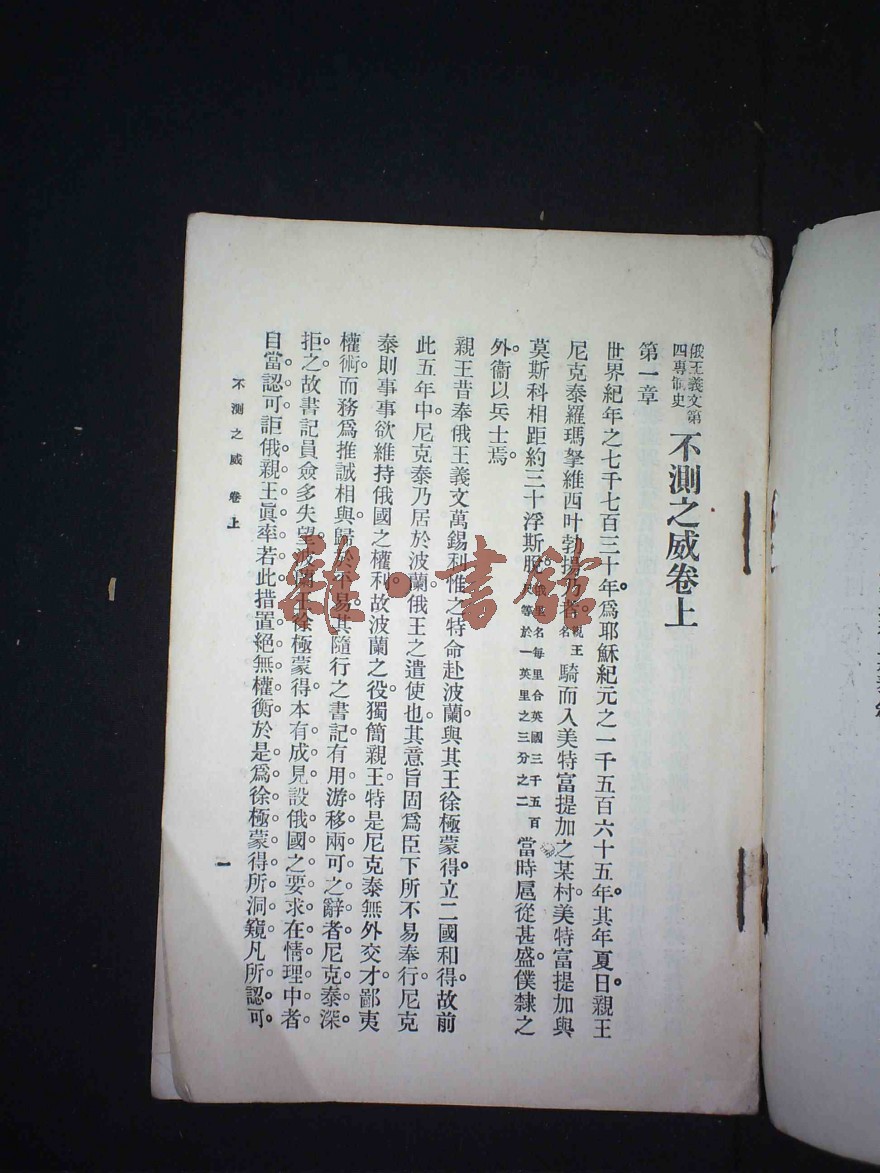 俄王義文第
四專制史
不測之威卷上
第一章
世界紀年之七千七百三十年。爲耶穌紀元之一千五百六十五年。其年夏日。親王
尼克泰羅瑪拏維西叶勃揚乃希親王名騎而入美特富提加之某村。美特富提加與
莫斯科相距約三十浮斯脫俄里名每里合英國三千五百尺等於一英里之三分之二當時扈從甚盛。僕隸之
外。衞以兵士焉。
親王昔奉俄王義文萬錫利惟之特命。赴波蘭。與其王徐極蒙得。立二國和得。故前
此五年中。尼克泰乃居於波蘭。俄王之遣使也。其意旨固爲臣下所不易奉行。尼克
泰則事事欲維持俄國之權利。故波蘭之役。獨簡親王。特是尼克泰無外交才。鄙夷
權術。而務爲推誠相與。歸於平易。其隨行之書記。有用游移兩可之辭者。尼克泰深
拒之。故書記員僉多失望。波蘭王徐極蒙得。本有成見。設俄國之要求在情理中者。
自當認可。詎俄親王眞率若此。措置絕無權衡。於是爲徐極蒙得所洞窺。凡所認可。
不測之威 卷上
一
雜·書館